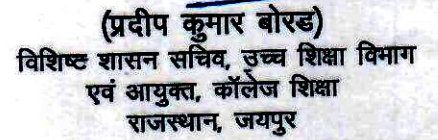 (प्रदीप कुमार बोरड)
विशिष्ट शासन सचिव, उच्च शिक्षा विभाग
एवं आयुक्त, कॉलेज शिक्षा
राजस्थान, जयपुर